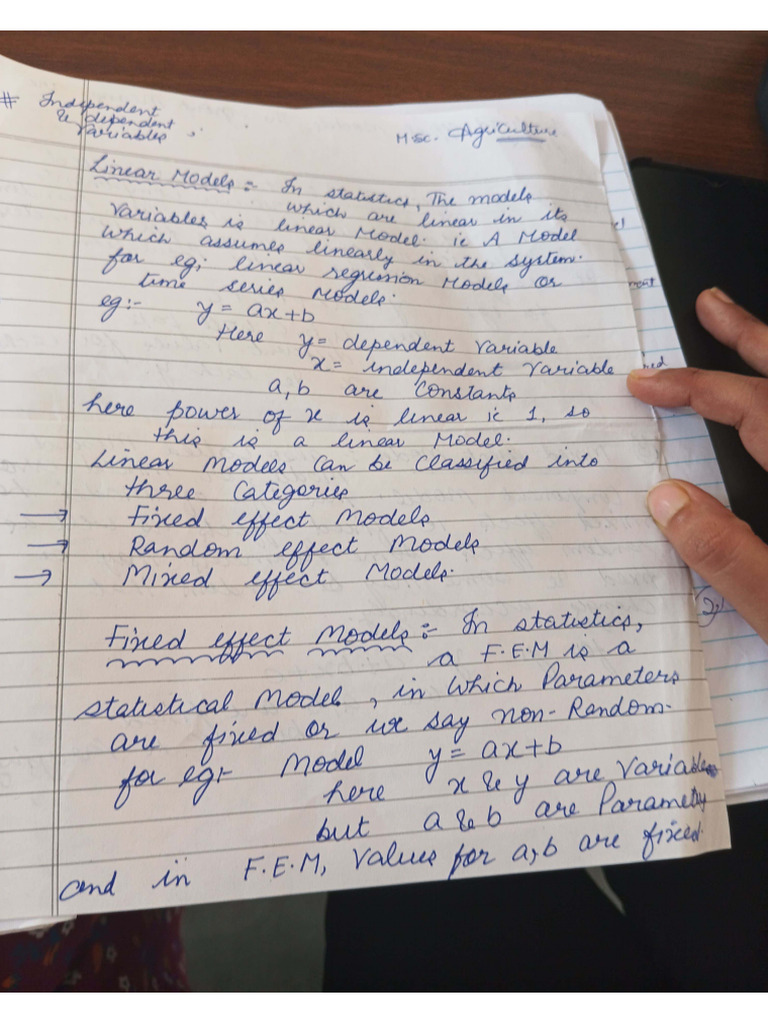 # Independent
& dependent
variables
M.Sc. Agriculture
Linear Models := In statistics, The models
which are linear in its
variables is linear Model. ie A Model
which assumes linearly in the system.
for eg; linear regression Models or
time series Models.
eg:- y = ax+b
Here y = dependent variable
x = independent variable
a, b are constants
here power of x is linear ie 1, so
this is a linear Model.
Linear Models can be classified into
three Categories
→ Fixed effect Models
→ Random effect Models
→ Mixed effect Models.
Fixed effect Models := In statistics,
a F.E.M is a
statistical Model, in which Parameters
are fixed or we say non-Random.
for eg:- Model y = ax+b
here x & y are variables
but a & b are Parameters
and in F.E.M, values for a, b are fixed.